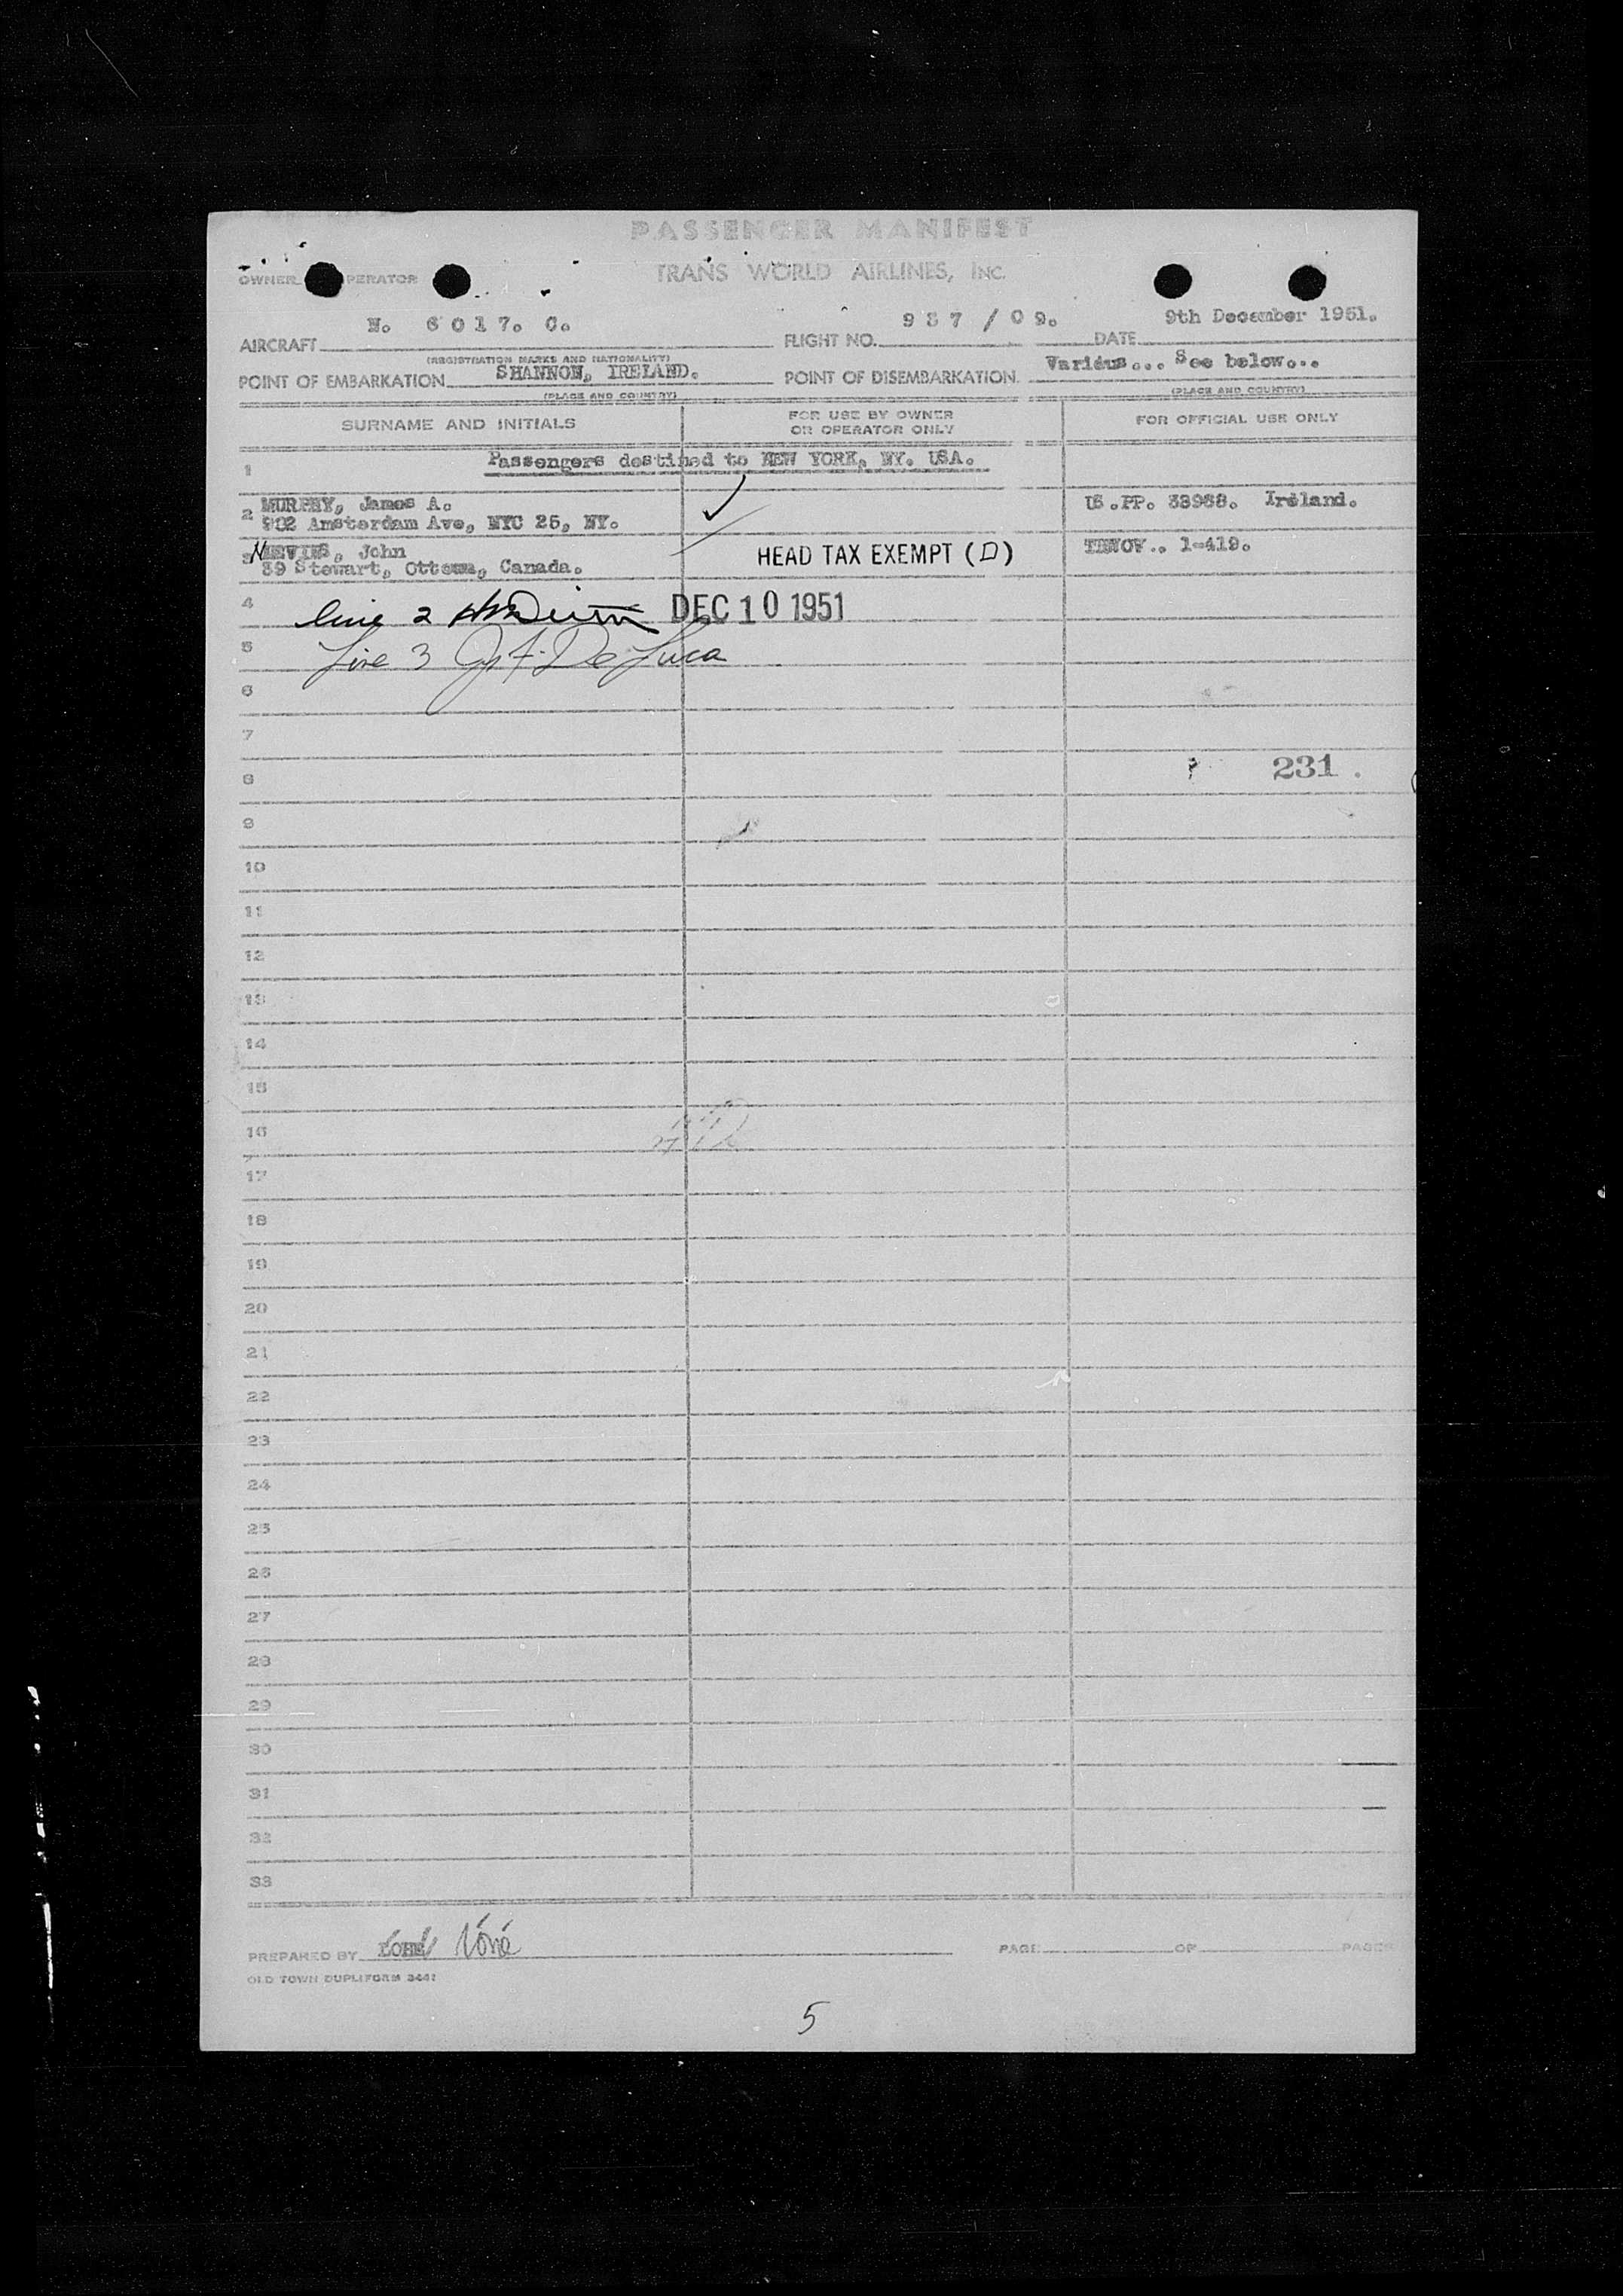 PASSENGER MANIFEST
OWNER OPERATOR TRANS WORLD AIRLINES, INC.
AIRCRAFT N. 6017. C. FLIGHT NO. 937 / 09. DATE 9th December 1951.
(REGISTRATION MARKS AND NATIONALITY)
POINT OF EMBARKATION SHANNON, IRELAND. POINT OF DISEMBARKATION Various... See below...
(PLACE AND COUNTRY) (PLACE AND COUNTRY)
SURNAME AND INITIALS FOR USE BY OWNER OR OPERATOR ONLY FOR OFFICIAL USE ONLY
1 Passengers destined to NEW YORK, NY. USA.
2 MURPHY, James A. US.PP. 38968. Ireland.
902 Amsterdam Ave, NYC 25, NY.
3 John HEAD TAX EXEMPT (D) 1-419.
39 Stewart, Ottawa, Canada.
4 line 2 DEC 10 1951
5 Line 3 De Luca
6
7
8 231
9
10
11
12
13
14
15
16
17
18
19
20
21
22
23
24
25
26
27
28
29
30
31
32
33
PREPARED BY PAGE OF PAGES
OLD TOWN DUPLIFORM 3441
5